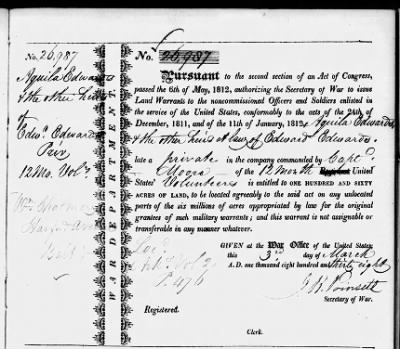 No. 26,987
Aquila Edwards
& the other heirs
of
Edwd. Edwards
Priv
12 Mo. Vols
WAR DEPARTMENT.
No. 26,987
Pursuant to the second section of an Act of Congress,
passed the 6th of May, 1812, authorizing the Secretary of War to issue
Land Warrants to the noncommissioned Officers and Soldiers enlisted
in the service of the United States, conformably to the acts of the 24th of
December, 1811, and of the 11th of January, 1812, Aquila Edwards
& the other heirs at law of Edward Edwards
late a private in the company commanded by Capt
Moore of the 12 month Regiment United
States' Volunteers is entitled to ONE HUNDRED AND SIXTY
ACRES OF LAND, to be located agreeably to the said act on any unlocated
parts of the six millions of acres appropriated by law for the original
grantees of such military warrants; and this warrant is not assignable
or transferable in any manner whatever.
GIVEN at the War Office of the United States:
this 3rd day of March
A. D. one thousand eight hundred and thirty eight
J. R. Poinsett
Secretary of War.
Registered.
P. 476
Clerk.